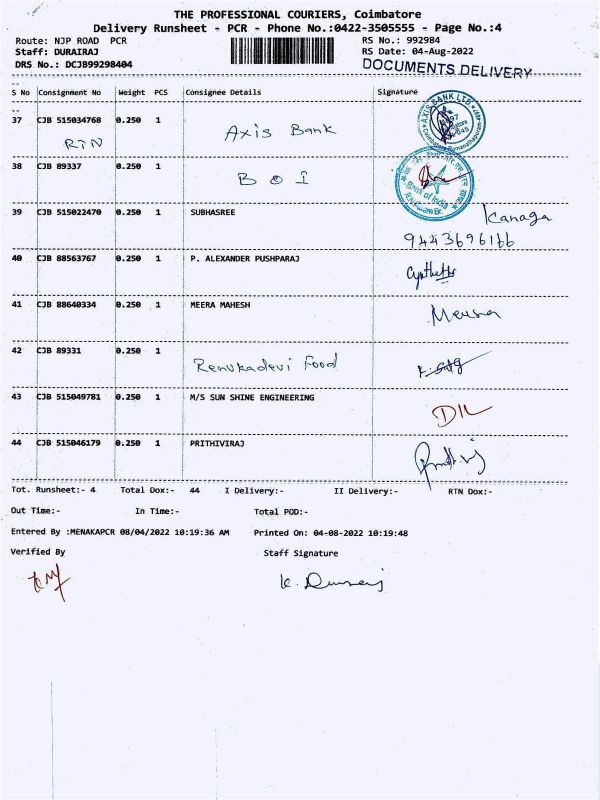 THE PROFESSIONAL COURIERS, Coimbatore
Delivery Runsheet - PCR - Phone No.:0422-3505555 - Page No.:4
Route: NJP ROAD PCR
RS No.: 992984
Staff: DURAIRAJ
RS Date: 04-Aug-2022
DRS No.: DCJB99298404
DOCUMENTS DELIVERY
S No Consignment No Weight PCS Consignee Details Signature
37 CJB 515034768 0.250 1 Axis Bank
RTN
AXIS BANK LTD
38 CJB 89337 0.250 1 BOI
Bank of India
39 CJB 515022470 0.250 1 SUBHASREE Kanaga
9443696166
40 CJB 88563767 0.250 1 P. ALEXANDER PUSHPARAJ
41 CJB 88640334 0.250 1 MEERA MAHESH Meera
42 CJB 89331 0.250 1 Renukadevi Food
43 CJB 515049781 0.250 1 M/S SUN SHINE ENGINEERING
44 CJB 515046179 0.250 1 PRITHIVIRAJ
Tot. Runsheet:- 4 Total Dox:- 44 I Delivery:- II Delivery:- RTN Dox:-
Out Time:- In Time:- Total POD:-
Entered By :MENAKAPCR 08/04/2022 10:19:36 AM Printed On: 04-08-2022 10:19:48
Verified By Staff Signature